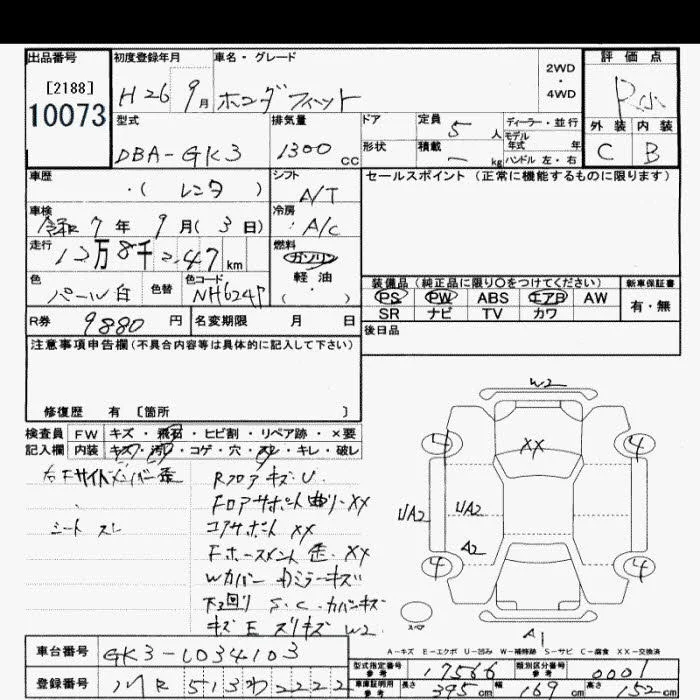 出品番号 初度登録年月 車名・グレード 2WD・4WD 評価点
[2188]
10073
H26 9月 ホンダフィット R小
型式 排気量 ドア 定員 ディーラー・並行 外装 内装
DBA-GK3 1300cc 5人 モデル年式 年 C B
形状 積載 - kg ハンドル 左・右
車歴 ・( レンタ ) シフト A/T セールスポイント(正常に機能するものに限ります)
車検 令和7年9月(3日) 冷房 A/C
走行 12万8千247km 燃料 ガソリン
軽油
( ・ )
色 パール白 色替 色コード NH624P
装備品(純正品に限り〇をつけてください) 新車保証書
PS PW ABS エアB AW 有・無
SR ナビ TV カワ
R券 9880円 名変期限 月 日 後日品
注意事項申告欄(不具合内容等は具体的に記入して下さい)
修復歴 有 〔箇所 〕
検査員 FW キズ・飛石・ヒビ割・リペア跡・×要
記入欄 内装 キズ・汚レ・コゲ・穴・スレ・キレ・破レ
右Fサイドメンバー歪 Rフロアキズ・U
Fロアサポート曲り・XX
シートスレ コアサポート XX
Fホースメント歪・XX
Wカバー 力ミラーキズ
下回り S.C.カバーキズ
キズ E ズリキズ W2
W2
XX
4 4
UA2 UA2
A2
4 4
スペア
A1
A-キズ E-エクボ U-凹み W-補修跡 S-サビ C-腐食 XX-交換済
車台番号 GK3-1034103
型式指定番号 参考 17566 類別区分番号 参考 0001
登録番号 川R 513わ2222
車庫証明用 参考 長さ 395cm 幅 169cm 高さ 152cm